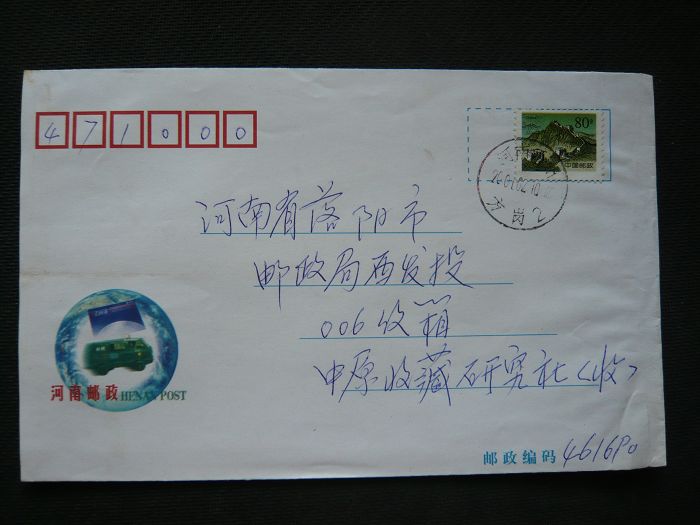 471000
80分
中国邮政
2001.02.10
河南省落阳市
邮政局西发投
006收箱
中原收藏研究社(收)
河南邮政 HENAN POST
邮政编码 461690